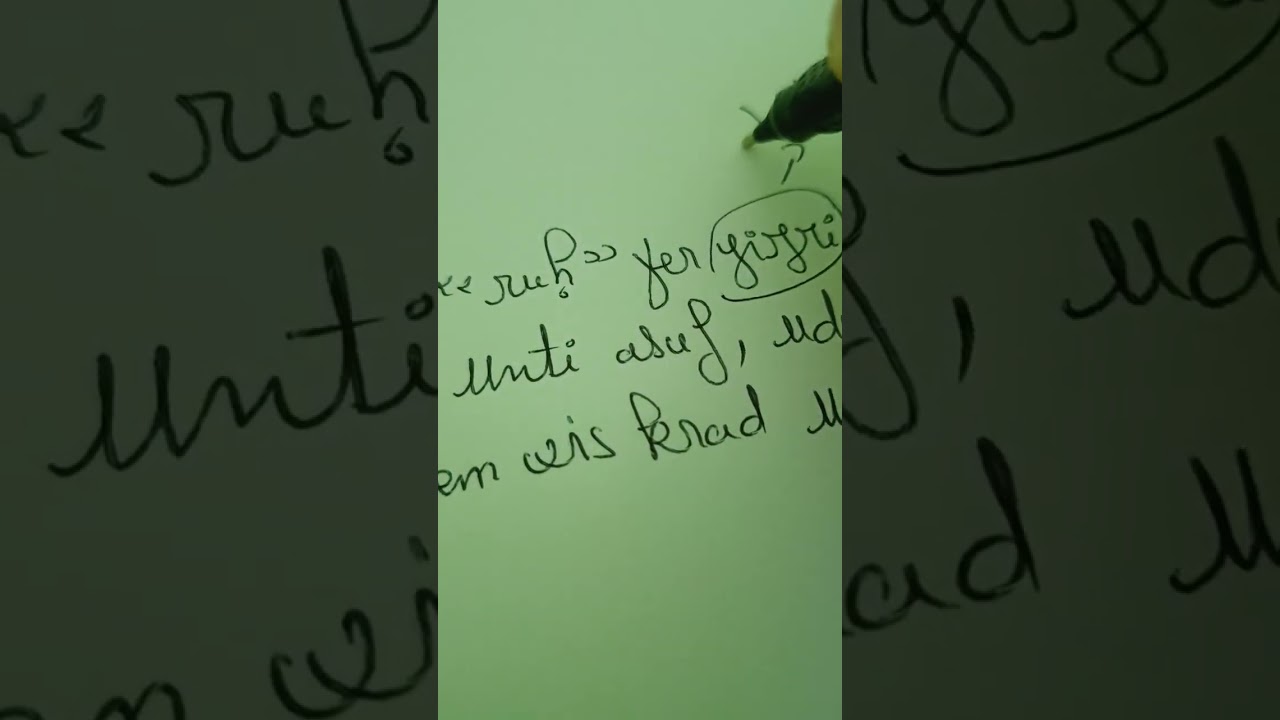 « ruḥ » fer yiẓri
unti asuf, ud
em ɣis krad u